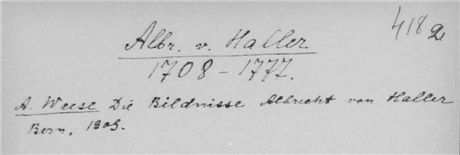 418 a
Albr. v. Haller
1708-1777.
A. Weese Die Bildnisse Albrecht von Haller
Bern, 1909.